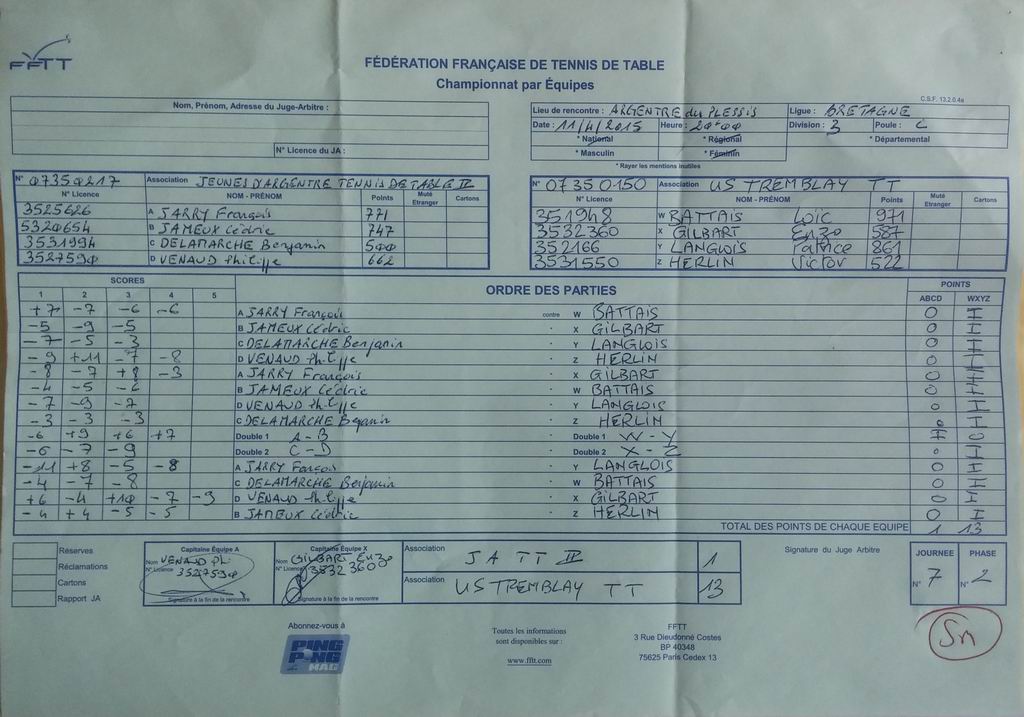 FFTT
FÉDÉRATION FRANÇAISE DE TENNIS DE TABLE
Championnat par Équipes
C.S.F. 13.2.0.4a
Nom, Prénom, Adresse du Juge-Arbitre :
N° Licence du JA :
Lieu de rencontre : ARGENTRE du PLESSIS Ligue : BRETAGNE
Date : 11/4/2015 Heure : 20H00 Division : 3 Poule : C
* National * Régional * Départemental
* Masculin * Féminin
* Rayer les mentions inutiles
N° 07350217 Association JEUNES D'ARGENTRE TENNIS DE TABLE II
N° Licence NOM - PRÉNOM Points Muté Etranger Cartons
3525626 A JARRY François 771
5320654 B JAMEUX Cédric 747
3531994 C DELAMARCHE Benjamin 500
3527590 D VENAUD Philippe 662
N° 07350150 Association US TREMBLAY TT
N° Licence NOM - PRÉNOM Points Muté Etranger Cartons
351948 W BATTAIS Loïc 971
3532360 X GILBART Enzo 587
352166 Y LANGLOIS Patrice 861
3531550 Z HERLIN Victor 522
SCORES ORDRE DES PARTIES POINTS
1 2 3 4 5 ABCD WXYZ
+7 -7 -6 -6 A JARRY François contre W BATTAIS 0 I
-5 -9 -5 B JAMEUX Cédric - X GILBART 0 I
-7 -5 -3 C DELAMARCHE Benjamin - Y LANGLOIS 0 I
-9 +11 -7 -8 D VENAUD Philippe - Z HERLIN 0 I
-8 -7 +8 -3 A JARRY François - X GILBART 0 I
-4 -5 -6 B JAMEUX Cédric - W BATTAIS 0 I
-7 -9 -7 D VENAUD Philippe - Y LANGLOIS 0 I
-3 -3 -3 C DELAMARCHE Benjamin - Z HERLIN 0 I
-6 +9 +6 +7 Double 1 A-B - Double 1 W-Y I 0
-6 -7 -9 Double 2 C-D - Double 2 X-Z 0 I
-11 +8 -5 -8 A JARRY François - Y LANGLOIS 0 I
-4 -7 -8 C DELAMARCHE Benjamin - W BATTAIS 0 I
+6 -4 +10 -7 -9 D VENAUD Philippe - X GILBART 0 I
-4 +4 -5 -5 B JAMEUX Cédric - Z HERLIN 0 I
TOTAL DES POINTS DE CHAQUE EQUIPE 1 13
Réserves
Réclamations
Cartons
Rapport JA
Capitaine Équipe A
Nom VENAUD Ph.
N° Licence 3527590
Signature à la fin de la rencontre
Capitaine Équipe X
Nom GILBART Enzo
N° Licence 3532360
Signature à la fin de la rencontre
Association JATT II 1
Association US TREMBLAY TT 13
Signature du Juge Arbitre
JOURNEE PHASE
N° 7 N° 2
Sn
Abonnez-vous à
PING PONG MAG
Toutes les informations
sont disponibles sur :
www.fftt.com
FFTT
3 Rue Dieudonné Costes
BP 40348
75625 Paris Cedex 13